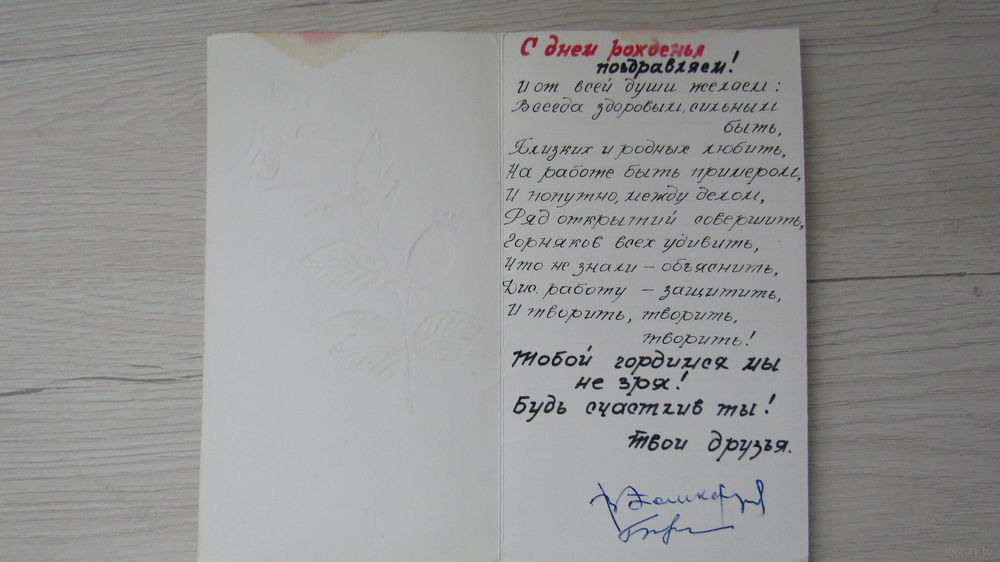 С днем рожденья
поздравляем!
И от всей души желаем:
Всегда здоровым, сильным
быть,
Близких и родных любить,
На работе быть примером,
И попутно, между делом,
Ряд открытий совершить,
Горняков всех удивить,
Что не знали – объяснить,
Дис. работу – защитить,
И творить, творить,
творить!
Тобой гордимся мы
не зря!
Будь счастлив ты!
Твои друзья.
www.ay.by